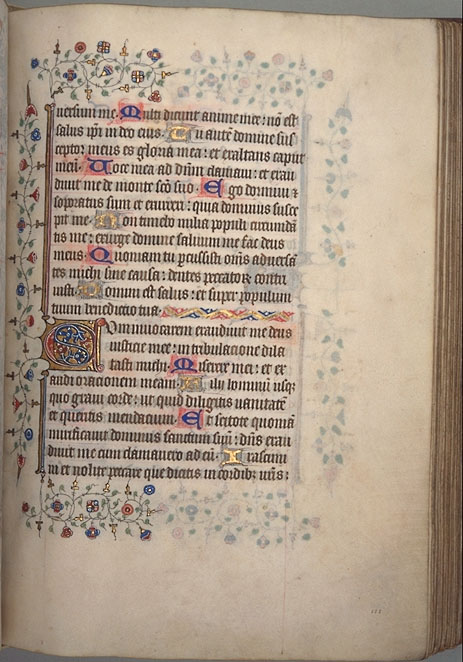 uersum me. Multi dicunt anime mee: nō est
salus ip̄i in deo eius. Tu autē domine sus
ceptor meus es gloria mea: et exaltans caput
meū. Uoce mea ad dn̄m clamaui: et exau
diuit me de monte sc̄o suo. Ego dormiui &
soporatus sum et exurrexi: quia dominus susce
pit me. Non timebo milia populi circumdā
tis me: exurge domine saluum me fac deus
meus. Quoniam tu percussisti om̄s aduersā
tes michi sine causa: dentes peccatorū contri
uisti. Domini est salus: et super populum
tuum benedictio tua.
Cum inuocarem exaudiuit me deus
iusticie mee: in tribulacione dila
tasti michi. Miserere mei: et ex
audi oracionem meam. Filij hominū usq
quo graui corde: ut quid diligitis uanitatē
et queritis mendacium. Et scitote quoniā
mirificauit dominus sanctum suū: dn̄s exau
diet me cum clamauero ad eū. Irascimi
ni et nolite peccare que dicitis in cordibꝫ ur̄is: